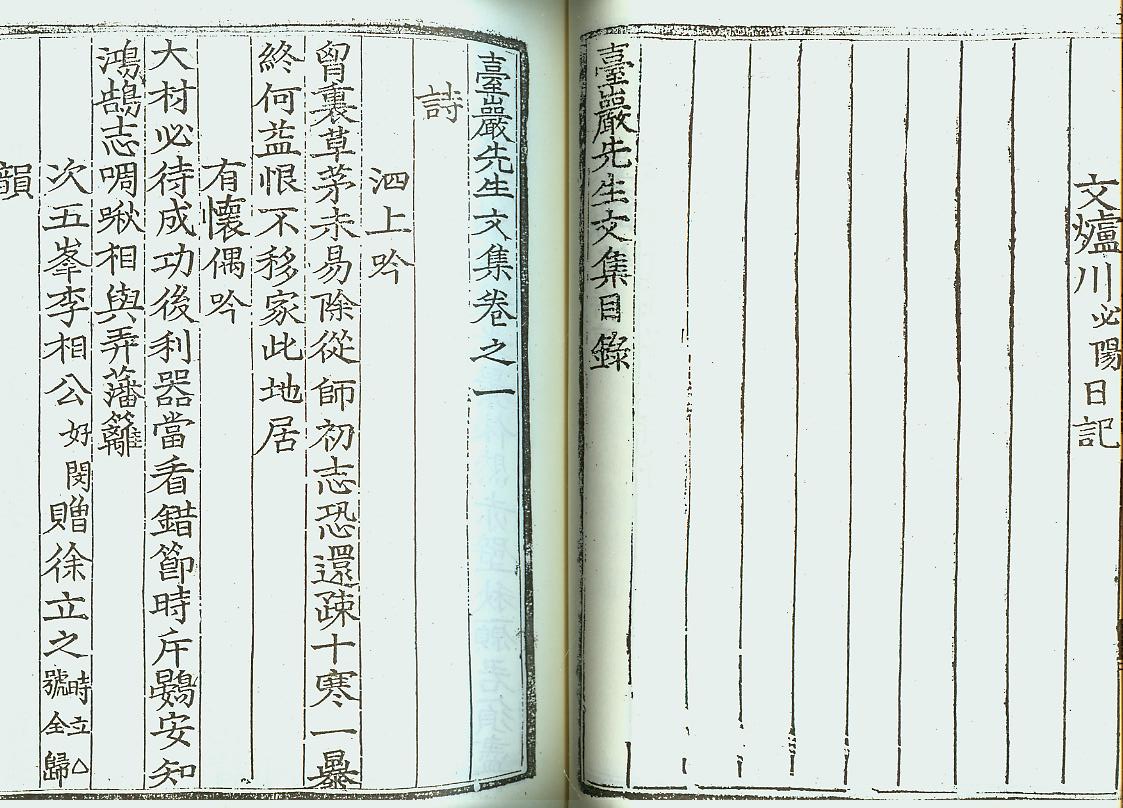 文爐川必陽日記
臺巖先生文集目錄
臺巖先生文集卷之一
詩
泗上吟
胷裏草茅未易除從師初志恐還疎十寒一暴
終何益恨不移家此地居
有懷偶吟
大材必待成功後利器當看錯節時斥鷃安知
鴻鵠志啁啾相與弄藩籬
次五峯李相公好閔贈徐立之時立△號全歸
韻